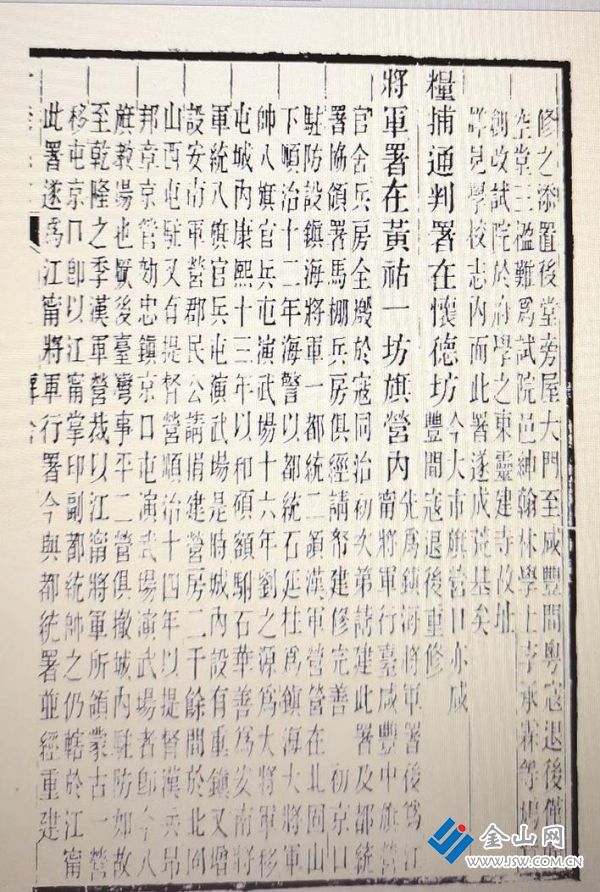 修之添置後堂旁屋大門至咸豐間粵寇退後僅
空堂三楹難為試院邑紳翰林學士李承霖等捐
創改試院於府學之東靈建寺故址
詳見學校志內而此署遂成荒基矣
糧捕通判署在懷德坊今大市旗營口亦咸
豐間寇退後重修
將軍署在黃祐一坊旗營內先為鎮海將軍署後為江
甯將軍行臺咸豐中旗營
官舍兵房全燬於寇同治初次第請建此署及都統
署協領署馬棚兵房俱經請帑建修完善 初京口
駐防設鎮海將軍一都統二領漢軍營營在北固山
下順治十二年海警以都統石廷柱為鎮海大將軍
帥八旗官兵屯演武場十六年劉之源為大將軍移
屯城內康熙十三年以和碩額駙石華善為安南將
軍統八旗官兵屯演武場是時城內設有重鎮又增
設安南軍營郡民公請捐建營房二千餘間於北固
山西屯駐又有提督營順治十四年以提督漢兵昂
邦京京管効忠鎮京口屯演武場演武場者即今八
旗教場也厥後臺灣事平二營俱撤城內駐防如故
至乾隆之季漢軍營裁以江甯將軍所領蒙古一營
移屯京口即以江甯掌印副都統帥之仍轄於江甯
此署遂為江甯將軍行署今與都統署並經重建
金山网
WWW.JSW.COM.CN